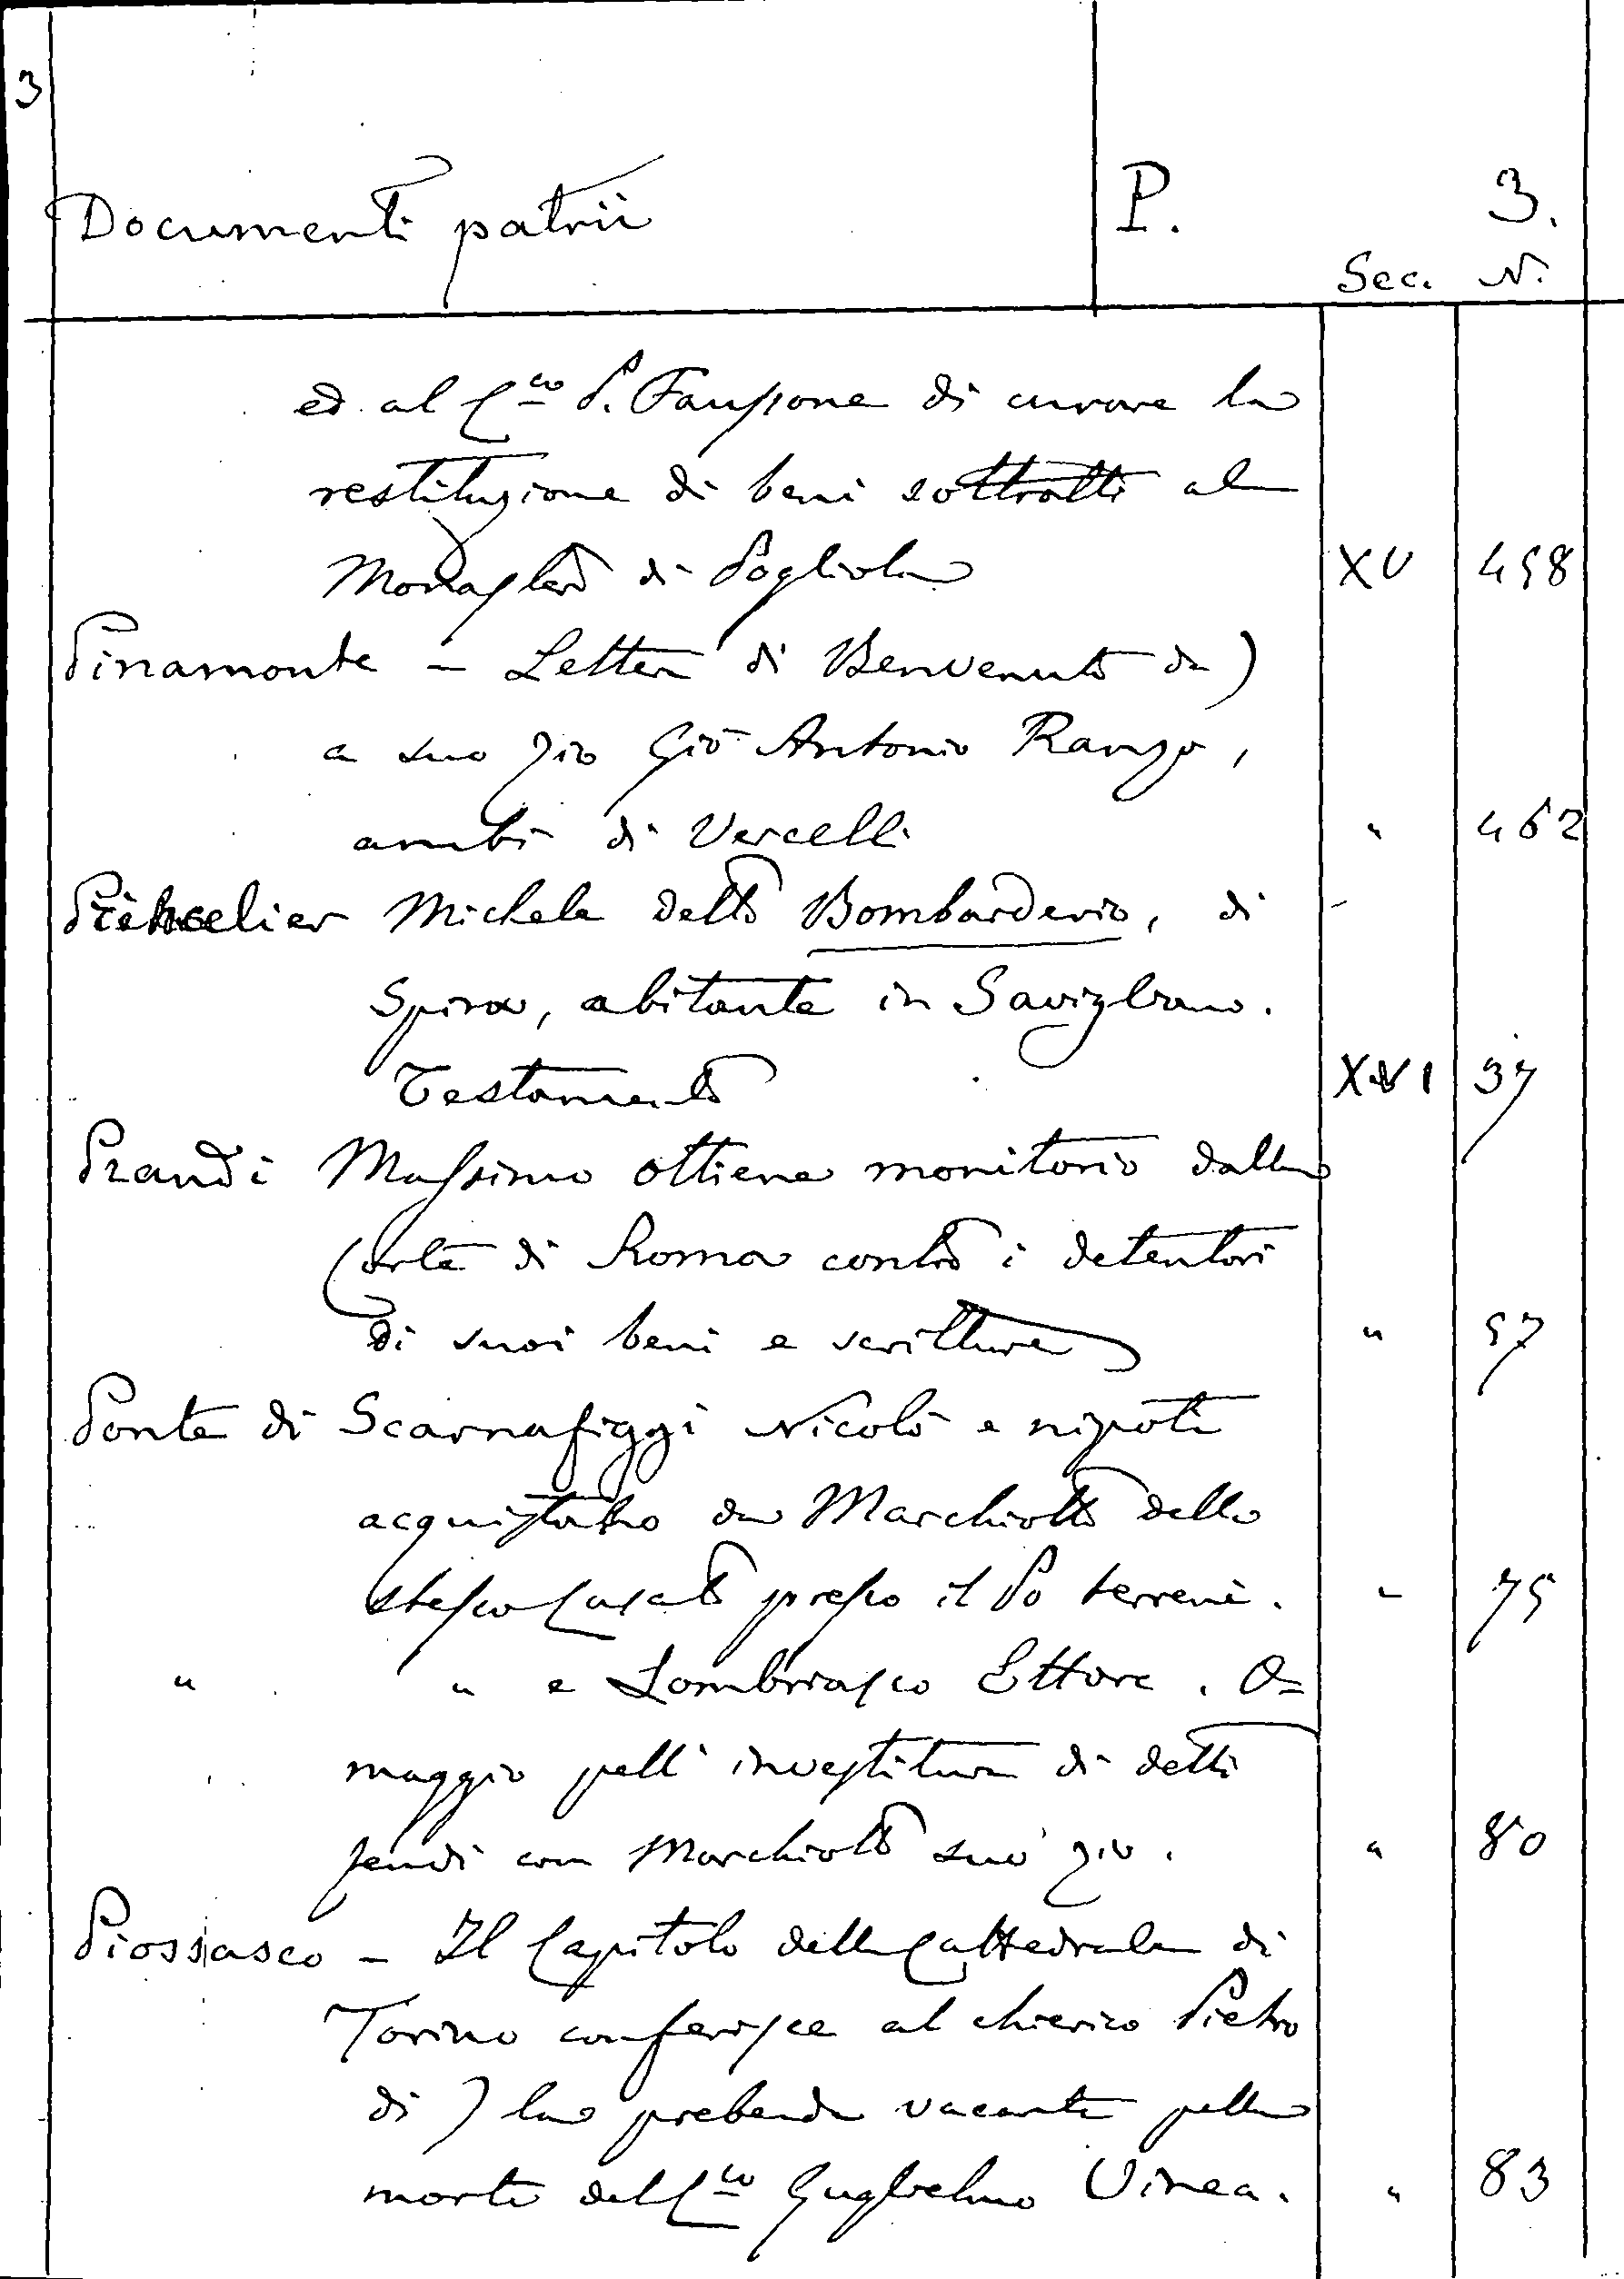 3
Documenti patrii P. 3.
Sec. N.
ed al C.co P. Faussone di curare la
restituzione di beni sottratti al
Monastero di Pogliola XV 458
Pinamonte - Lettera di Benvenuto da)
a suo zio Giō Antonio Ranzo,
ambi di Vercelli " 462
Michele detto Bombarderio, di
Spira, abitante in Savigliano.
Testamento XVI 37
Prandi Massimo ottiene monitorio dalla
Corte di Roma contro i detentori
di suoi beni e scritture " 57
Ponte di Scarnafiggi Nicolò e nipoti
acquistano da Marchiotto dello
stesso casato presso il Po terreni. " 75
" " e Lombriasco Ettore. O=
maggio pell' investitura di detti
feudi con Marchiotto suo zio. " 80
Piossasco - Il Capitolo della Cattedrale di
Torino conferisce al chierico Pietro
di) la prebenda vacante pella
morte del C.co Guglielmo Vinea. " 83